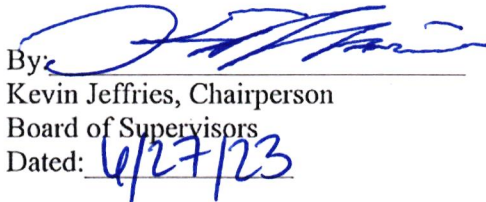 By:
Kevin Jeffries, Chairperson
Board of Supervisors
Dated: 6/27/23